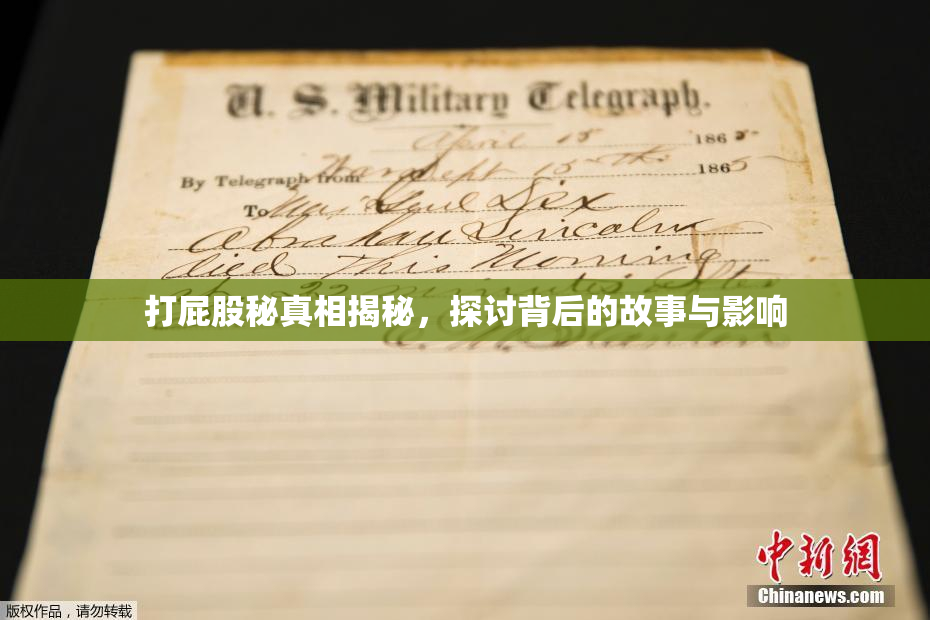 U. S. Military Telegraph.
April 15 1865
By Telegraph from War Dept 15th 1865
To Maj Genl Dix
Abraham Lincoln
died this Morning
22 minutes after
打屁股秘真相揭秘，探讨背后的故事与影响
E. M. Stanton
中新網
Chinanews.com
版权作品，请勿转载